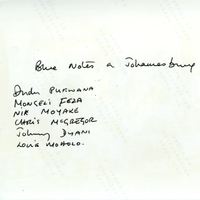 Blue Notes a Johannesburg
Dudu PUKWANA
MONGEZI FEZA
NIK MOYAKE
CHRIS McGREGOR
Johnny DYANI
LOUIS MOHOLO.